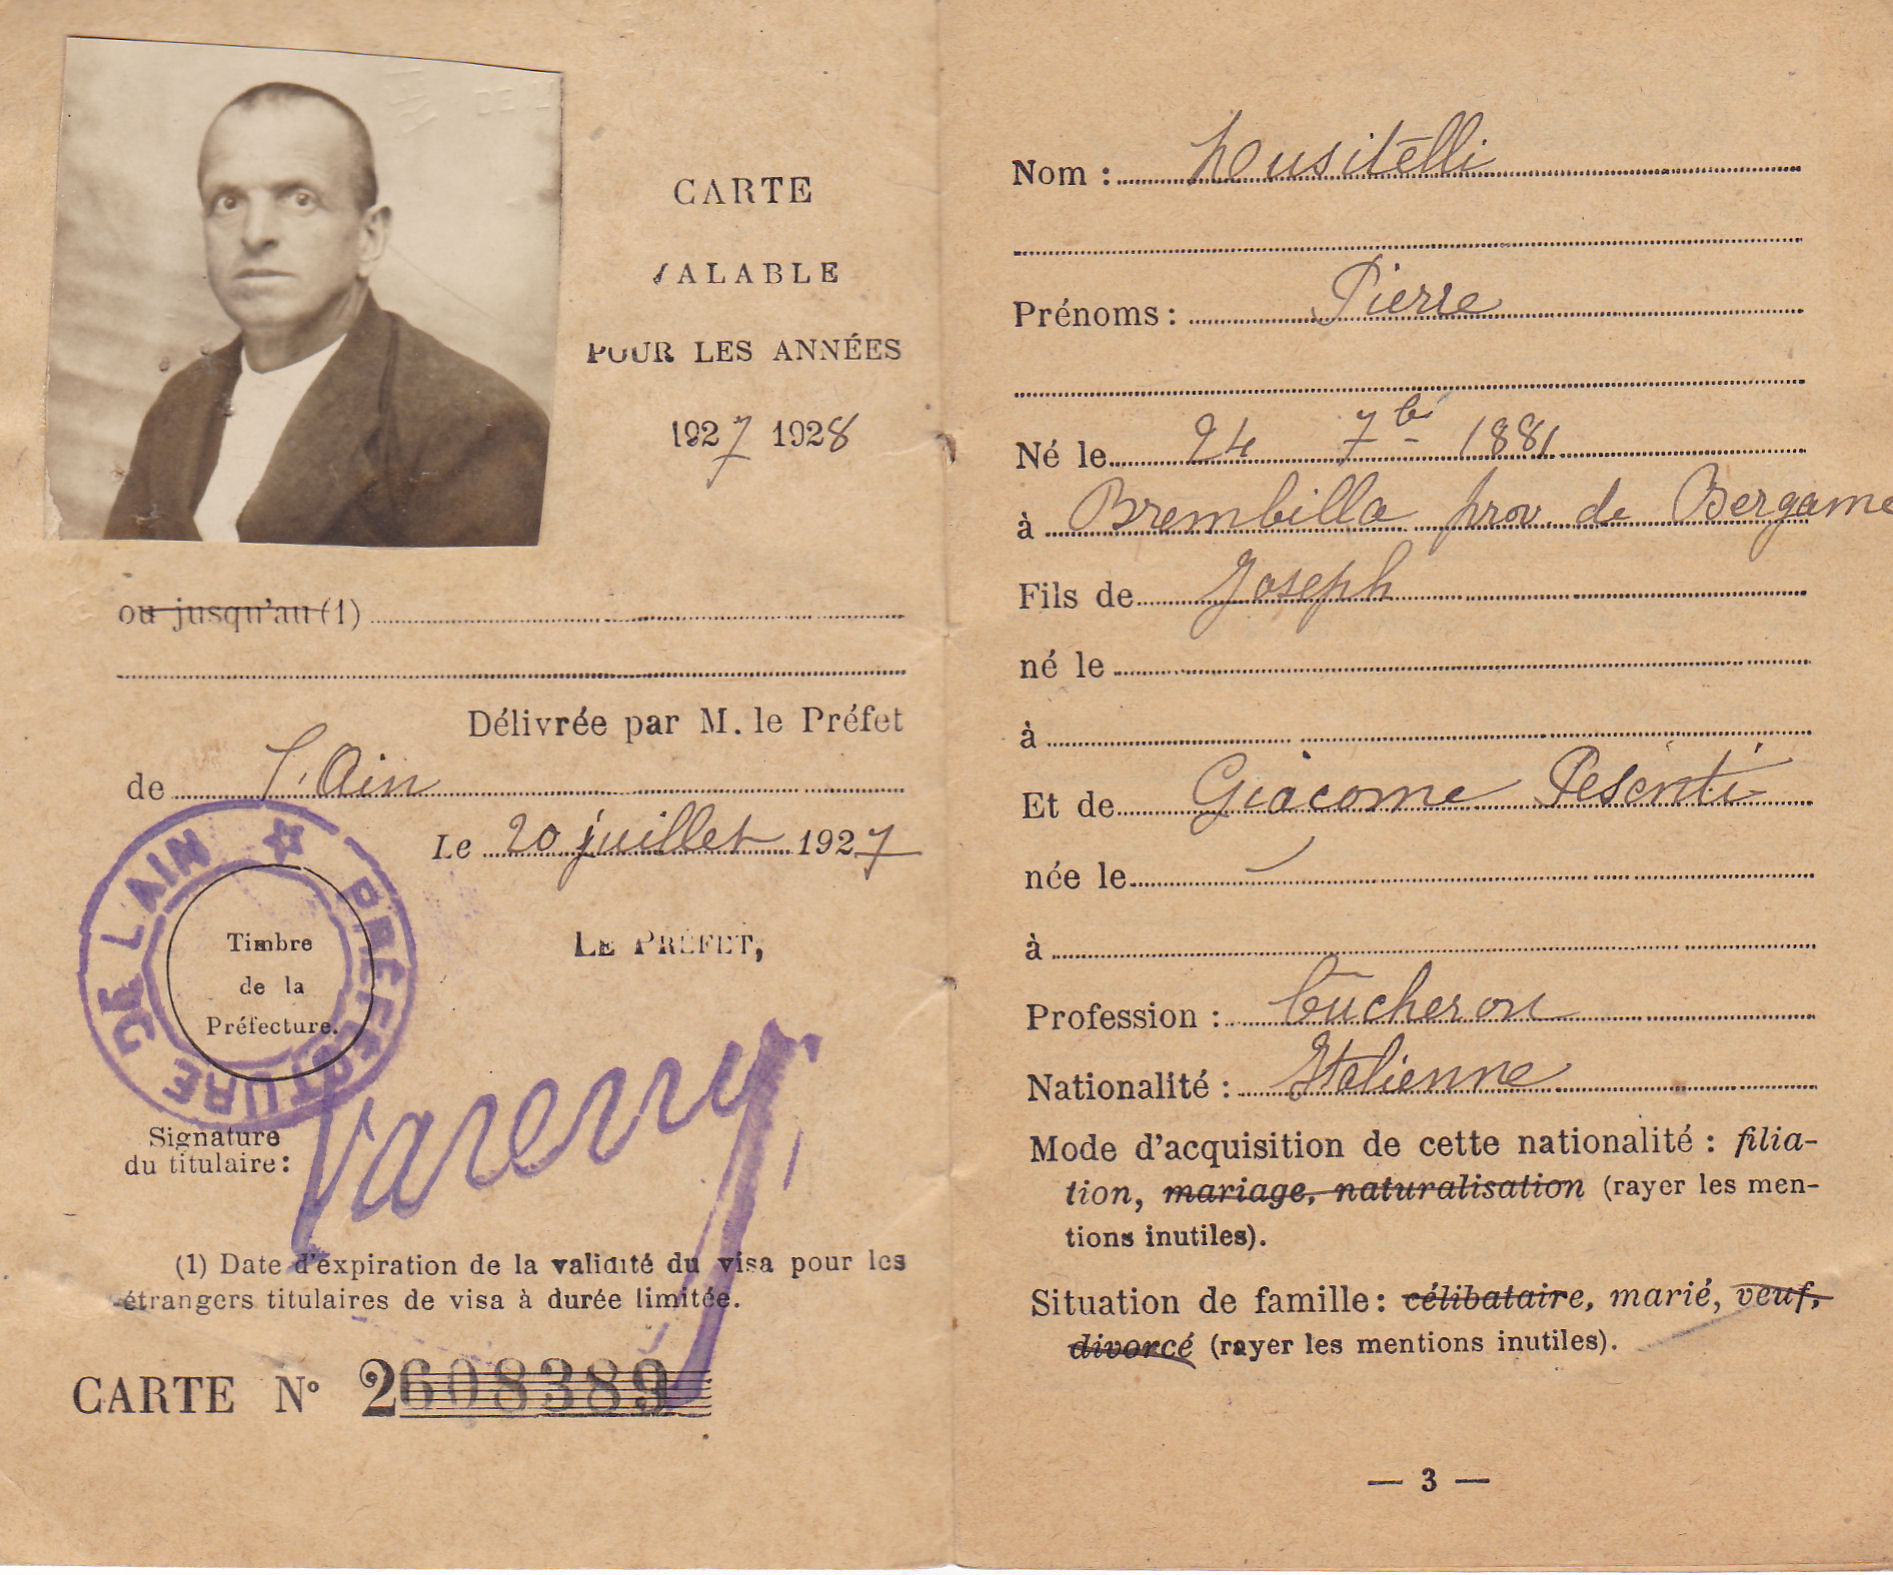 CARTE
VALABLE
POUR LES ANNÉES
1927 1928
ou jusqu'au (1)
Délivrée par M. le Préfet
de l'Ain
Le 20 juillet 1927
LE PRÉFET,
PRÉFECTURE DE L'AIN
Timbre
de la
Préfecture.
Signature
du titulaire:
(1) Date d'expiration de la validité du visa pour les
étrangers titulaires de visa à durée limitée.
CARTE N° 2608389
Nom : Musitelli
Prénoms : Pierre
Né le 24 7bre 1881
à Brembilla prov. de Bergame
Fils de Joseph
né le
à
Et de Giacome Pesenti
née le
à
Profession : bûcheron
Nationalité : Italienne
Mode d'acquisition de cette nationalité : filia-
tion, mariage, naturalisation (rayer les men-
tions inutiles).
Situation de famille : célibataire, marié, veuf,
divorcé (rayer les mentions inutiles).
— 3 —